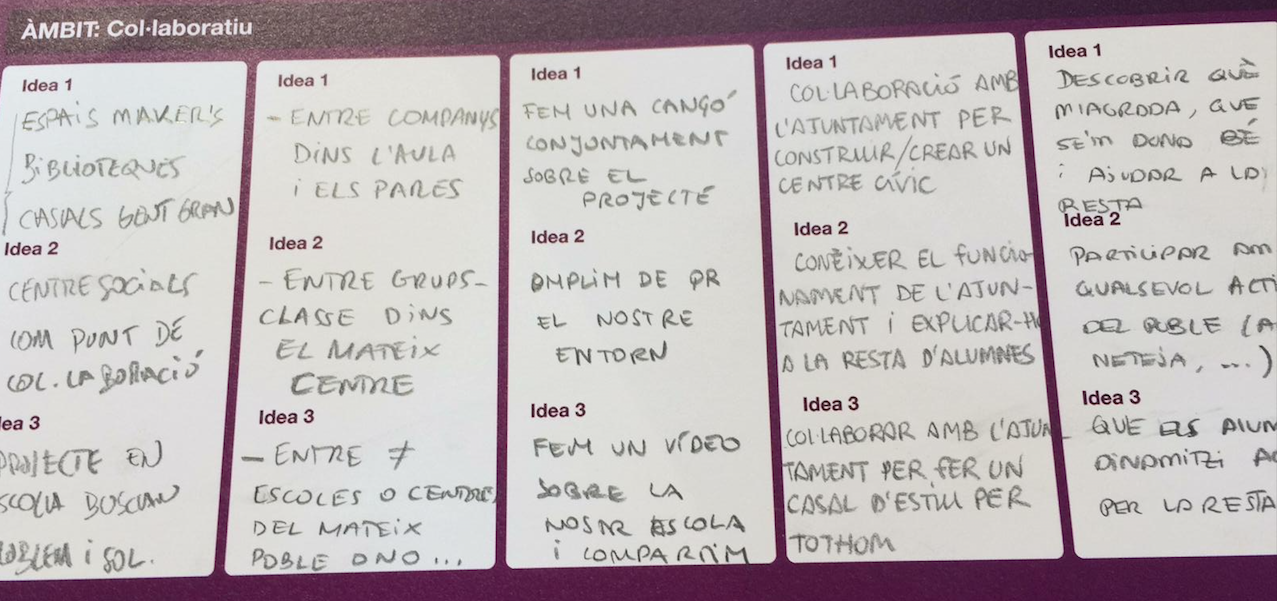 ÀMBIT: Col·laboratiu
Idea 1
ESPAIS MAKER'S
BIBLIOTEQUES
CASALS GENT GRAN
Idea 2
CENTRE SOCIALS
COM PUNT DE
COL.LABORACIÓ
ea 3
PROJECTE EN
SCOLA BUSCAN
OBLEM I SOL.
Idea 1
- ENTRE COMPANYS
DINS L'AULA
i ELS PARES
Idea 2
- ENTRE GRUPS-
CLASSE DINS
EL MATEIX
CENTRE
Idea 3
- ENTRE ≠
ESCOLES O CENTRES
DEL MATEIX
POBLE O NO...
Idea 1
FEM UNA CANÇÓ
CONJUNTAMENT
SOBRE EL
PROJECTE
Idea 2
OMPLIM DE QR
EL NOSTRE
ENTORN
Idea 3
FEM UN VÍDEO
SOBRE LA
NOSTR ESCOLA
i COMPARTIM
Idea 1
COL·LABORACIÓ AMB
L'AJUNTAMENT PER
CONSTRUIR/CREAR UN
CENTRE CÍVIC
Idea 2
CONÈIXER EL FUNCIO-
NAMENT DE L'AJUN-
TAMENT I EXPLICAR-HO
A LA RESTA D'ALUMNES
Idea 3
COL·LABORAR AMB L'AJUN-
TAMENT PER FER UN
CASAL D'ESTIU PER
TOTHOM
Idea 1
DESCOBRIR QUÈ
M'AGRADA, QUE
SE'M DONA BÉ
i AJUDAR A LA
RESTA
Idea 2
PARTICIPAR AM
QUALSEVOL ACTI
DEL POBLE (A
NETEJA, ...)
Idea 3
QUE ELS ALUM
DINAMITZI AC
PER LA RESTA